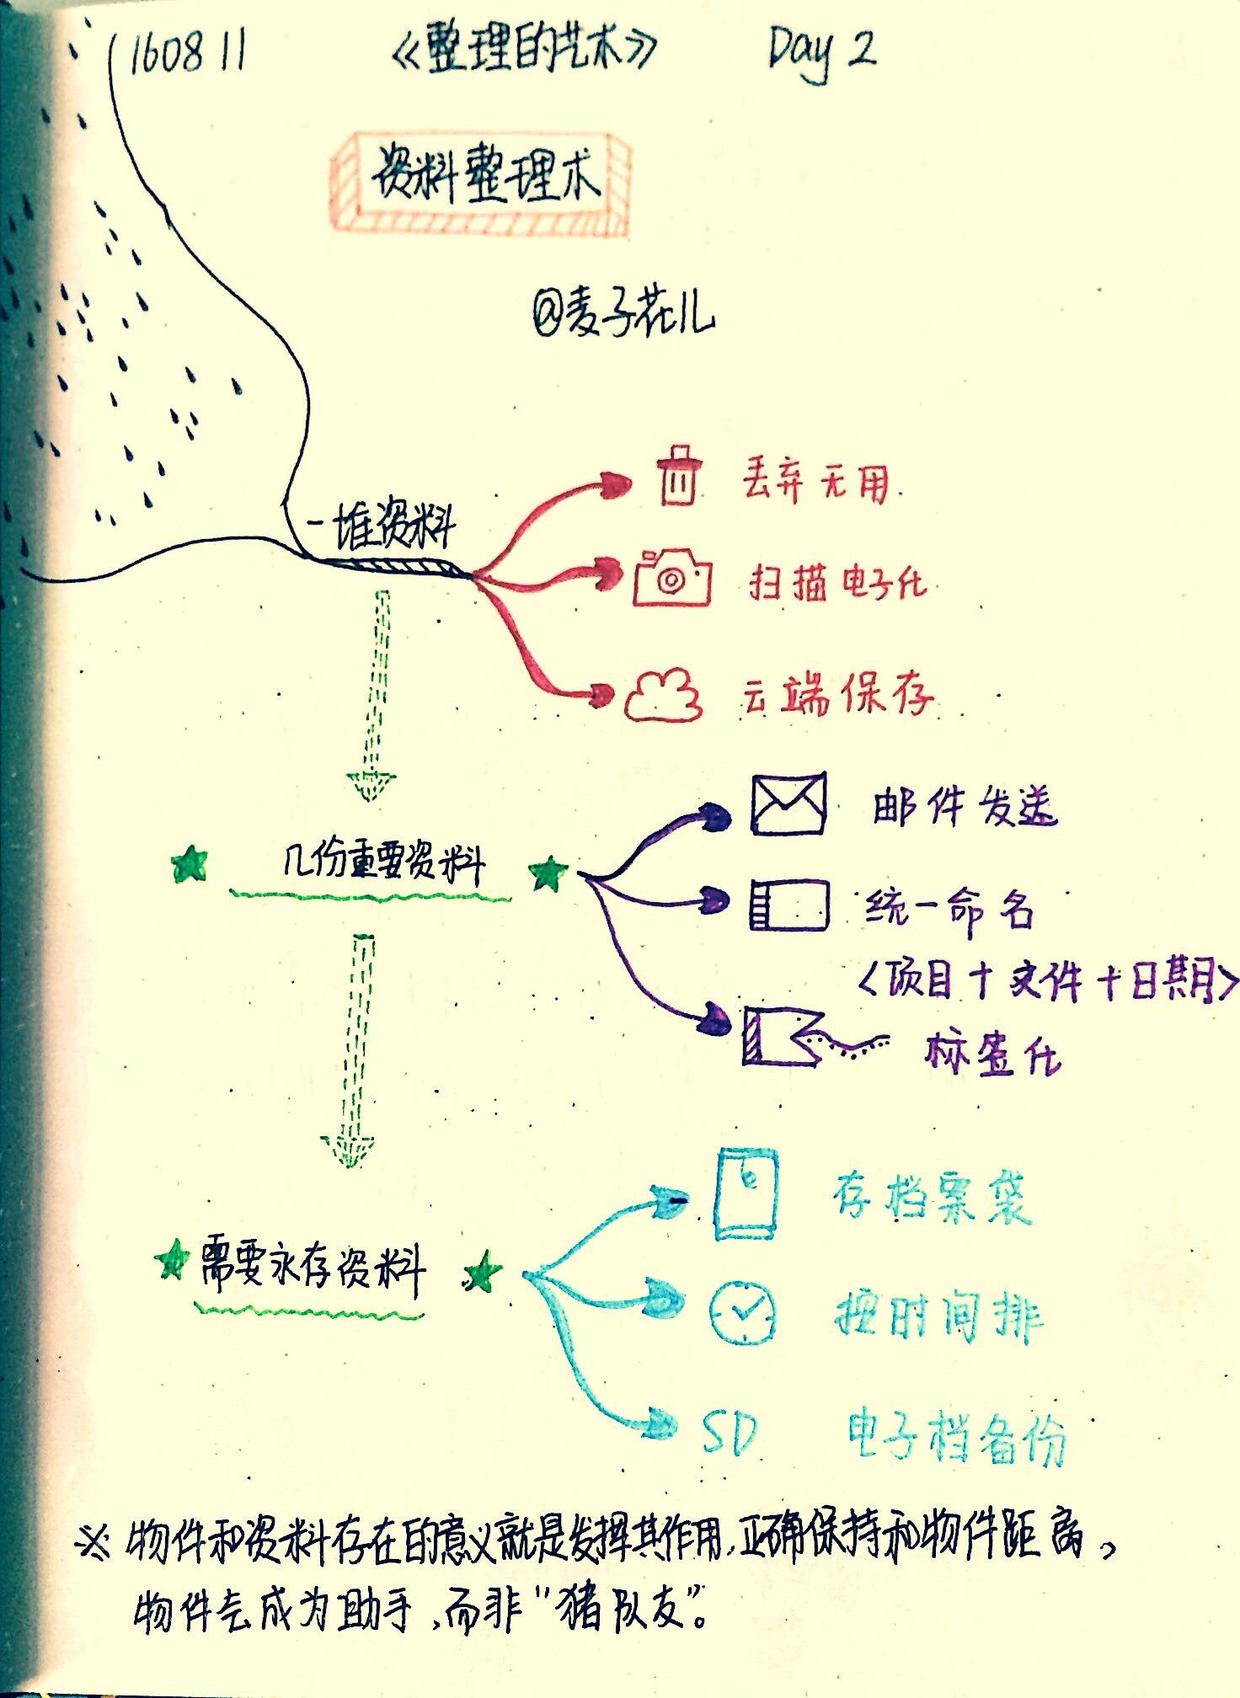 160811 《整理的艺术》 Day 2
资料整理术
@麦子花儿
一堆资料
丢弃无用
扫描电子化
云端保存
几份重要资料
邮件发送
统一命名
<项目+文件+日期>
标签化
需要永存资料
存档案袋
按时间排
SD 电子档备份
※ 物件和资料存在的意义就是发挥其作用,正确保持和物件距离,
物件会成为助手,而非"猪队友"。